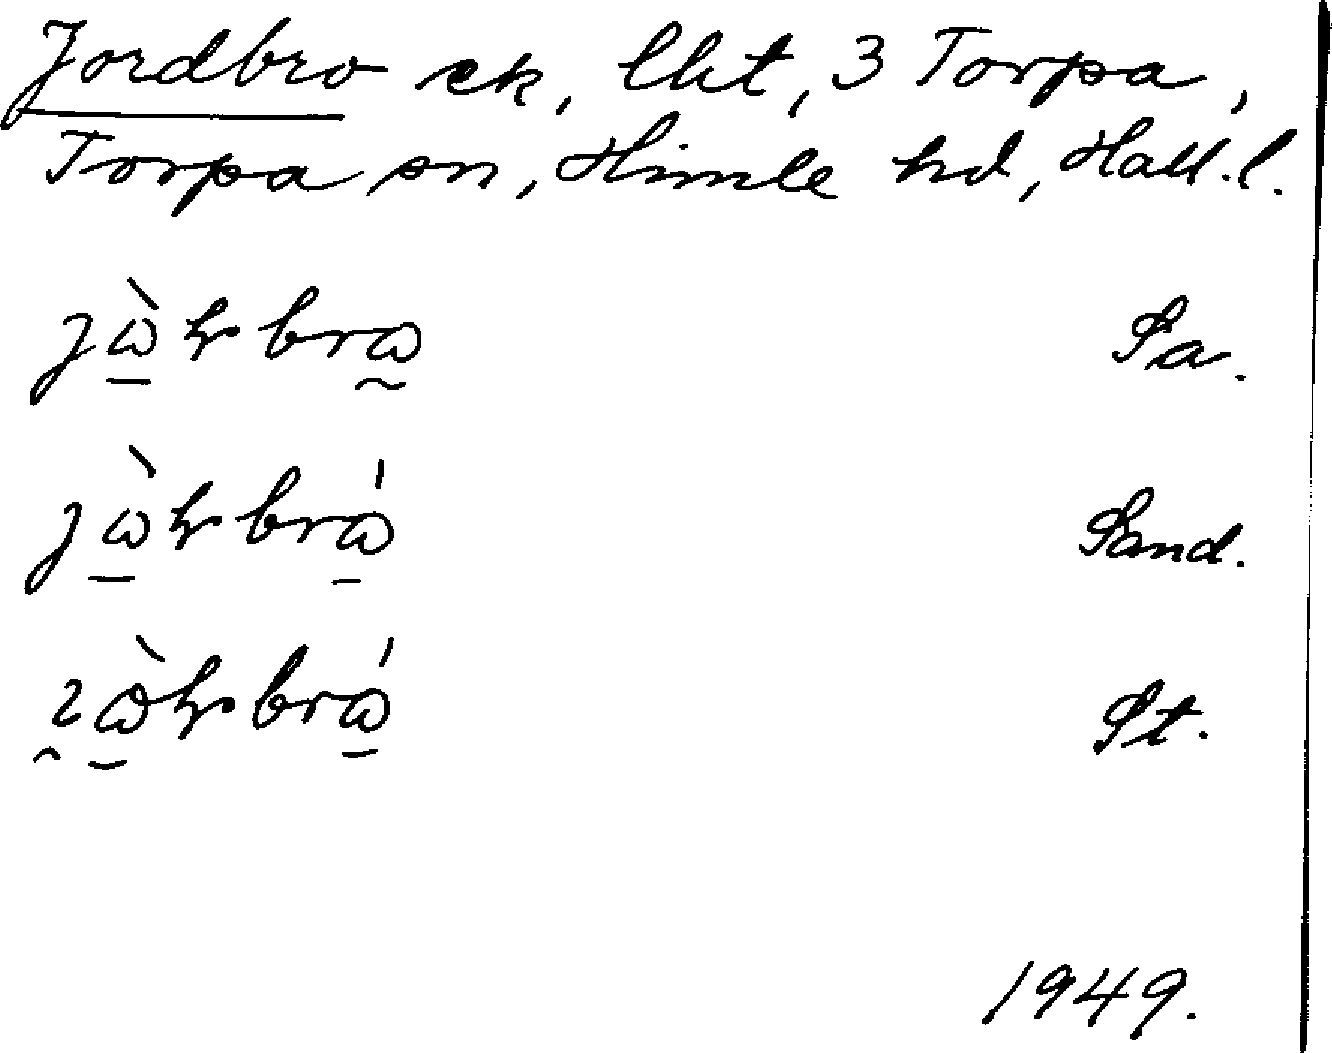 Jordbro ek, lht, 3 Torpa,
Torpa sn, Himle hd, Hall.l.
jὼ̲rbrω̰ Sa.
jὼ̲rbrώ̲ Sand.
ɿ̯ὼ̲rbrώ̲ St.
1949.